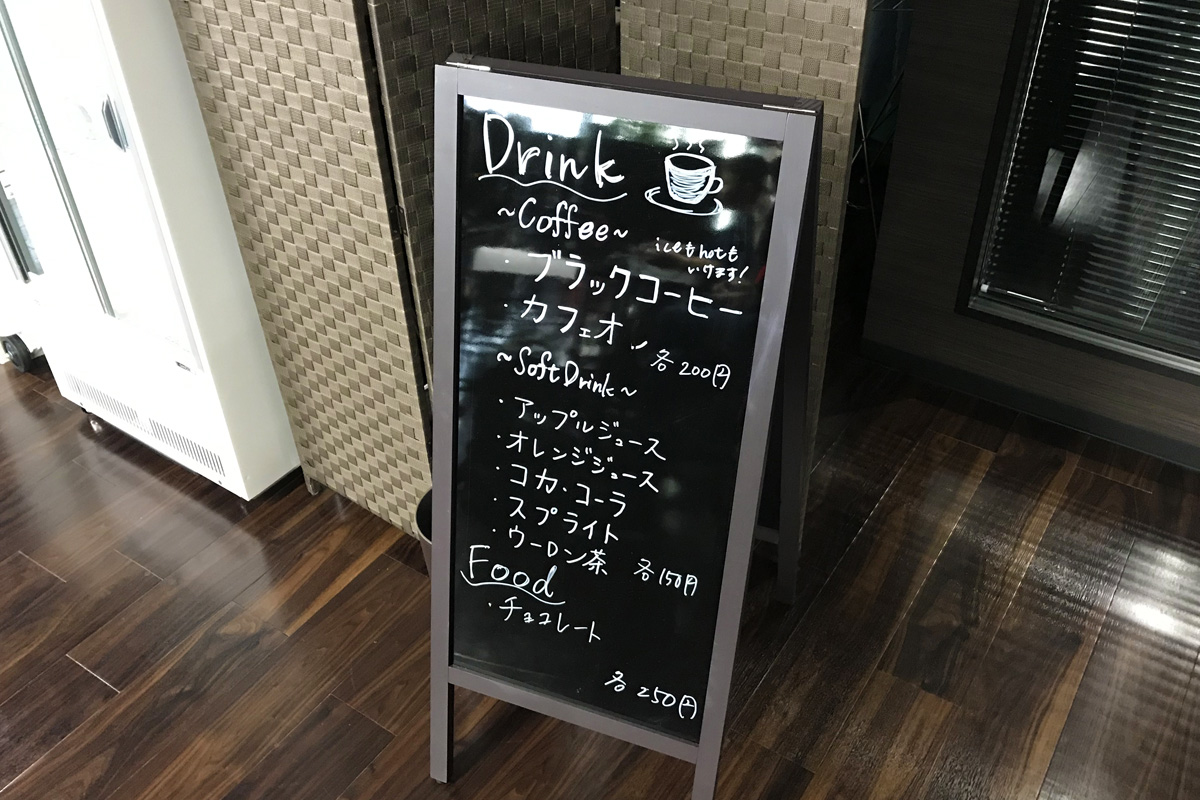 Drink
~Coffee~
iceもhotも
いけます!
・ブラックコーヒー
・カフェオ
各200円
~Soft Drink~
・アップルジュース
・オレンジジュース
・コカ・コーラ
・スプライト
・ウーロン茶 各150円
Food
・チョコレート
各250円